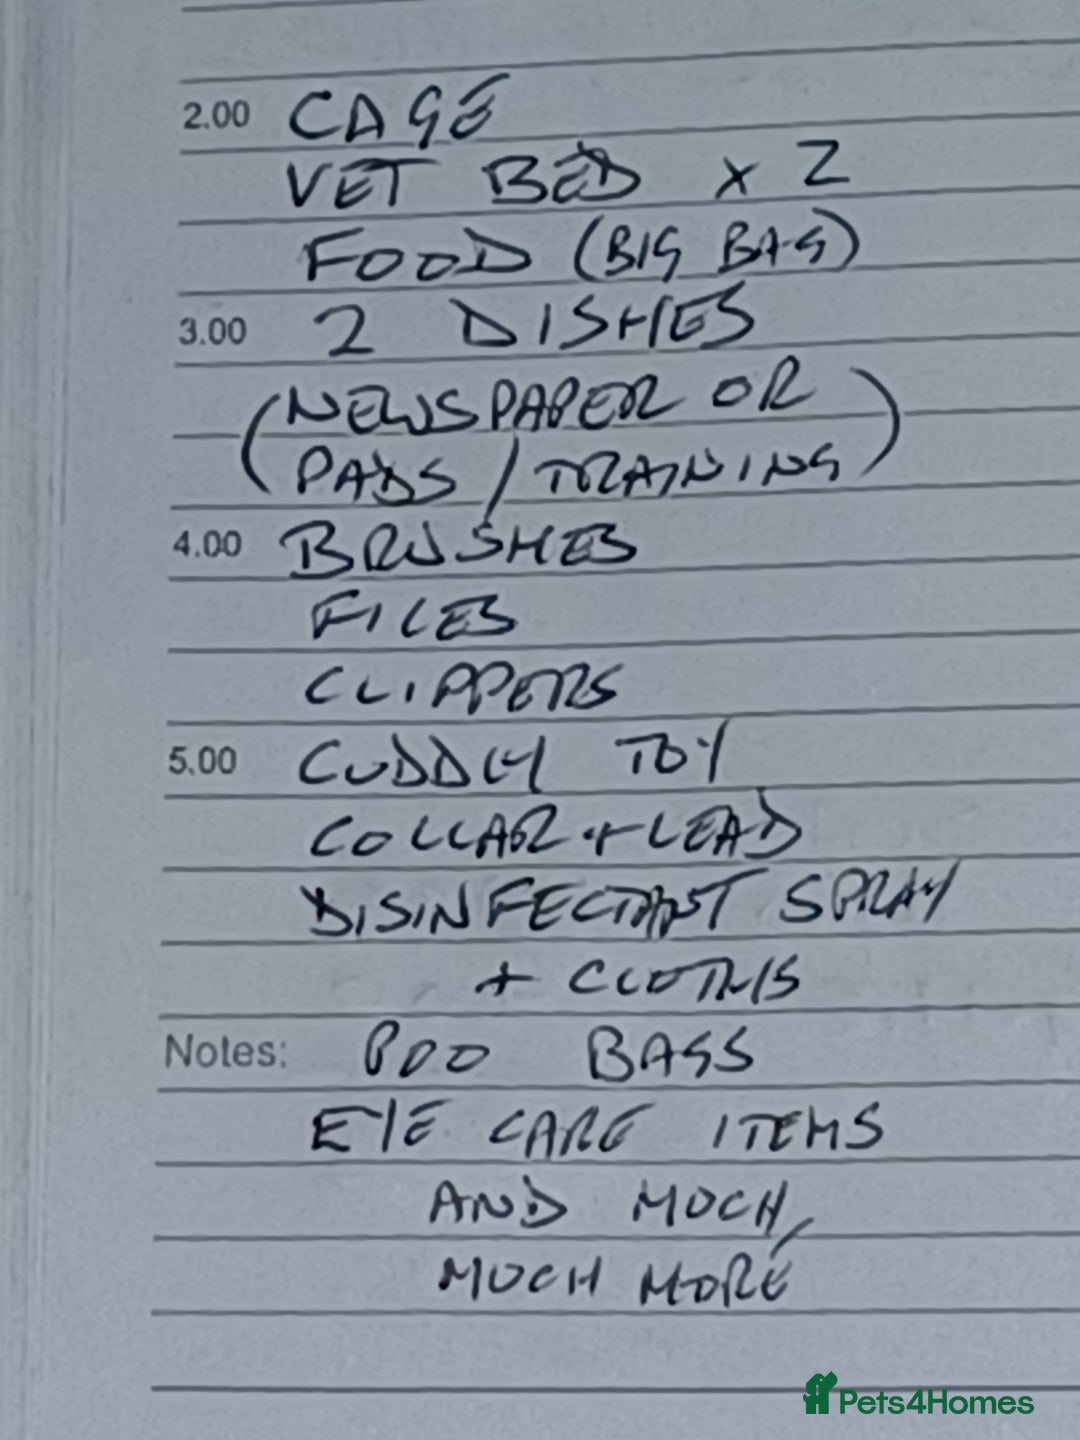 2.00 CAGE
VET BED x 2
FOOD (BIG BAG)
3.00 2 DISHES
(NEWSPAPER OR
PADS / TRAINING)
4.00 BRUSHES
FILES
CLIPPERS
5.00 CUDDLY TOY
COLLAR + LEAD
DISINFECTANT SPRAY
+ CLOTHS
Notes: POO BAGS
EYE CARE ITEMS
AND MUCH,
MUCH MORE
Pets4Homes